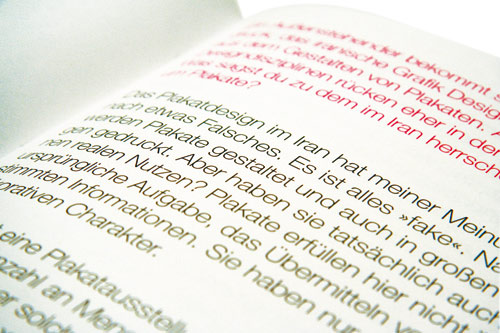 Außenstehender bekommt
das iranische Grafik Desig
auf dem Gestalten von Plakaten.
signdisziplinen rücken eher in der
was sagst du zu dem im Iran herrsch
um Plakate?
Das Plakatdesign im Iran hat meiner Meinu
nach etwas Falsches. Es ist alles »fake«. Na
werden Plakate gestaltet und auch in großen
gen gedruckt. Aber haben sie tatsächlich auch
nen realen Nutzen? Plakate erfüllen hier nicht
ursprüngliche Aufgabe, das Übermitteln
stimmten Informationen. Sie haben nur
orativen Charakter.
eine Plakatausstell
nzahl an Men
er solch